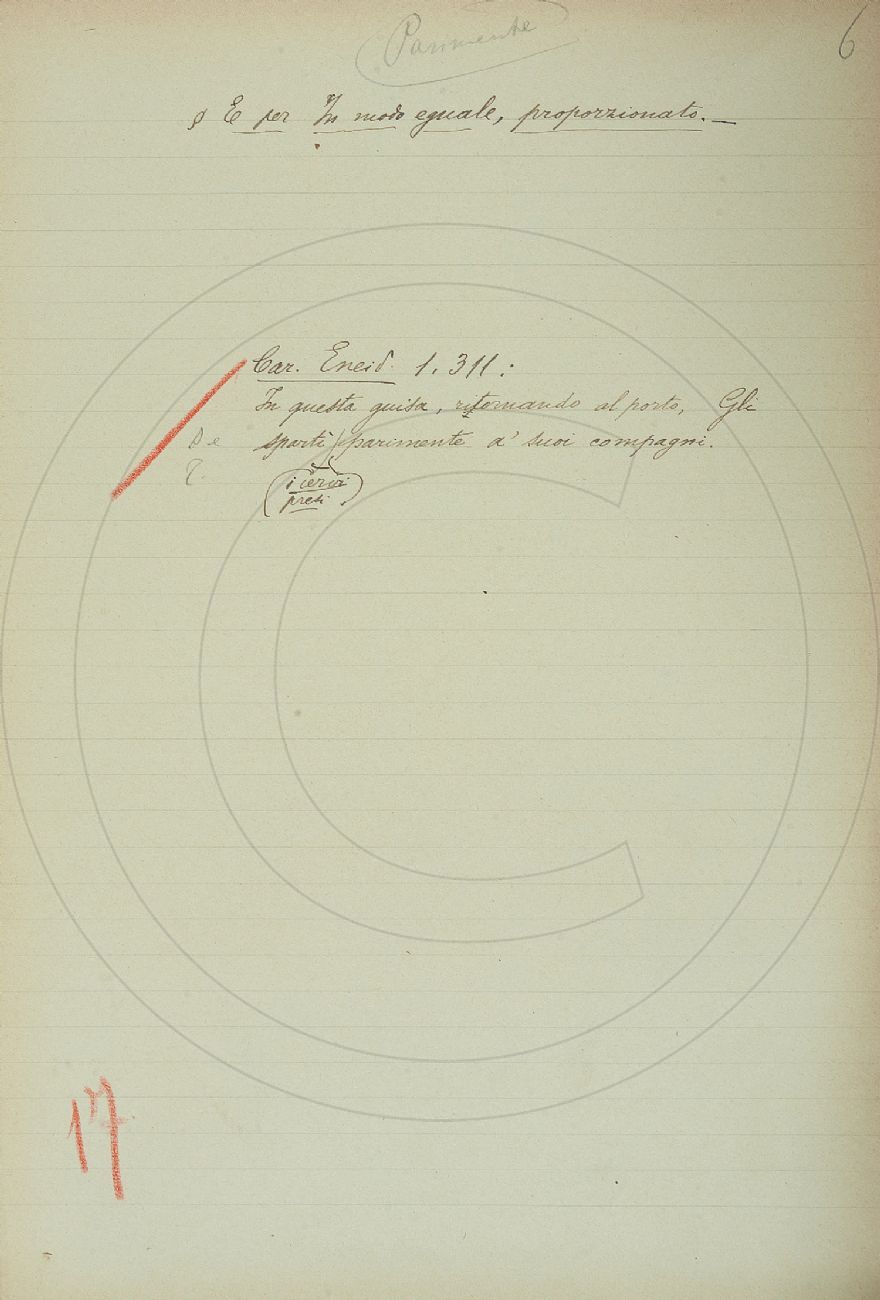 Parimente
6
§ E per In modo eguale, proporzionato. —
Car. Eneid. 1. 311:
In questa guisa, ritornando al porto, Gli
De sparti parimente a' suoi compagni.
T.
(i cervi
presi.)
17